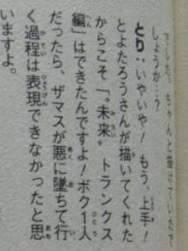 しょうか…？
とり：いやいや！ もう、上手！
とよたろうさんが描いてくれた
からこそ「〝未来〟トランクス
編」はできたんですよ！ボク1人
だったら、ザマスが悪に墜ちて行
く過程は表現できなかったと思
いますよ。